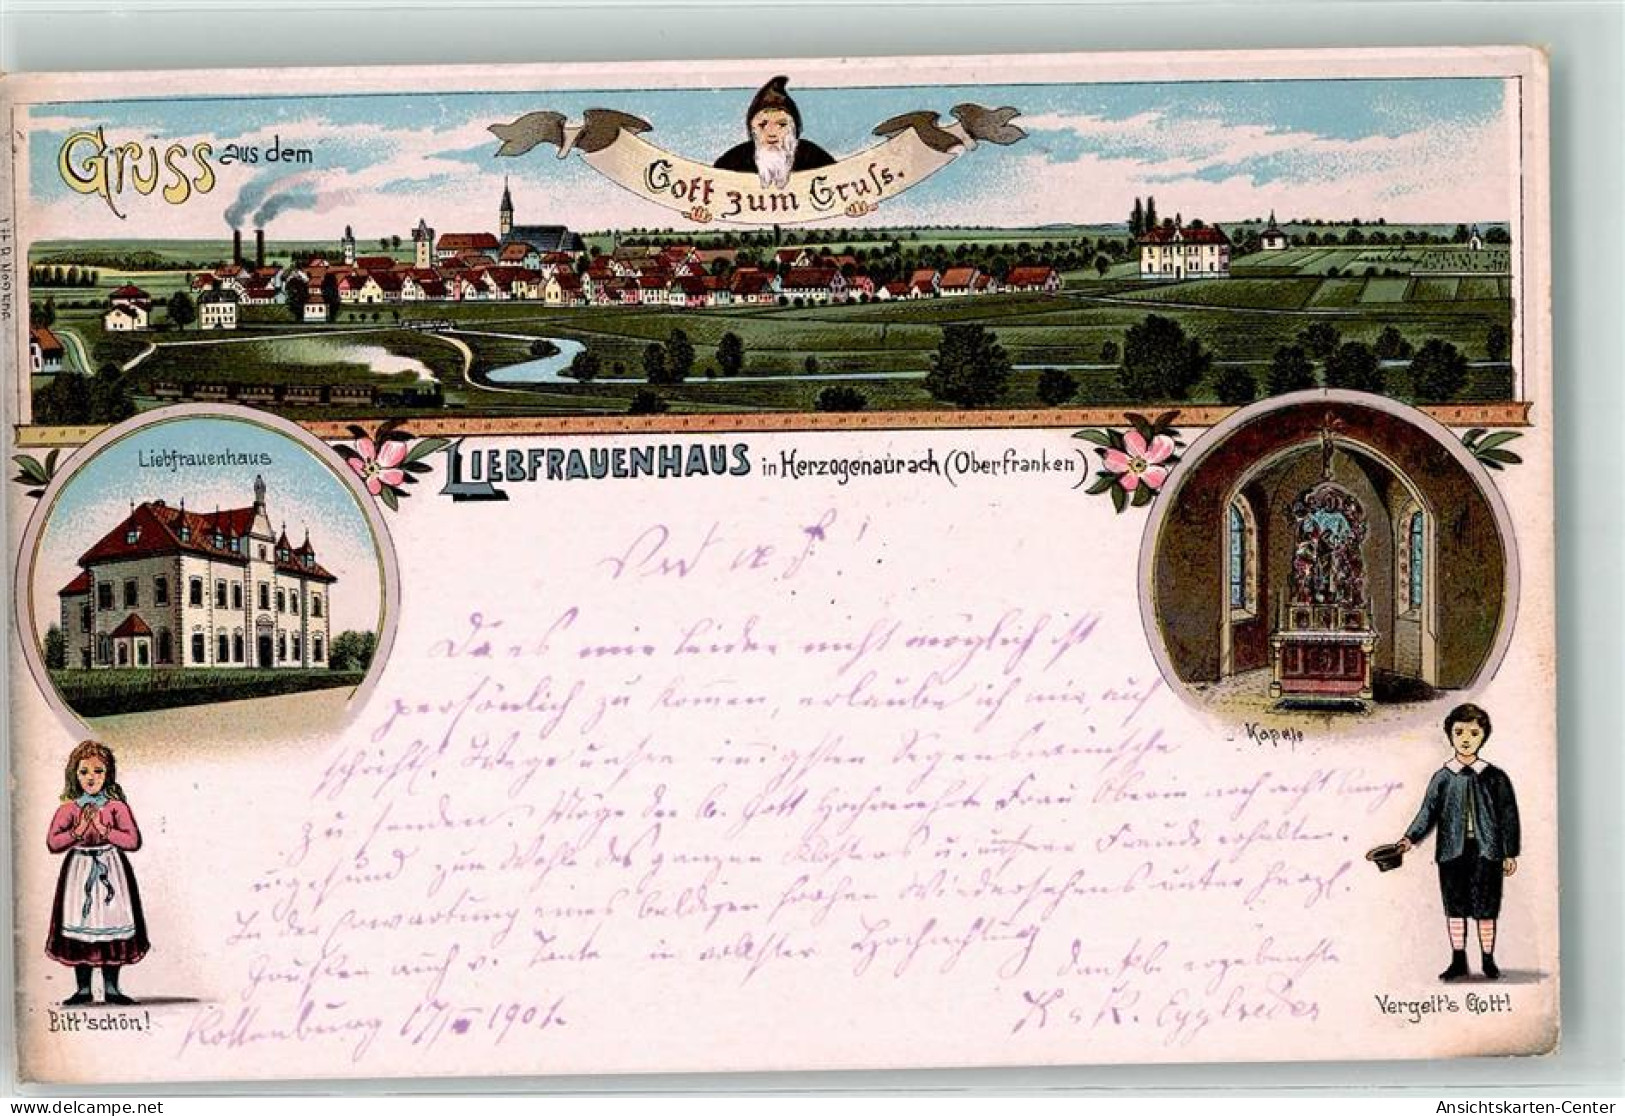 Gruss aus dem
Gott zum Gruss.
Liebfrauenhaus
LIEBFRAUENHAUS in Herzogenaurach (Oberfranken)
Kapelle
Da es mir leider nicht möglich ist
persönlich zu kommen, erlaube ich mir auf
schriftl. Wege unsre innigsten Segenswünsche
zu senden. Möge der lb. Gott Hochverehrte Frau Oberin noch recht lange
gesund zum Wohle des ganzen Klosters u. unserer Freude erhalten.
In der Erwartung eines baldigen frohen Wiedersehens unter herzl.
Grüßen auch v. Tante in vollster Hochachtung
dankb. ergebenste
Rottenburg 17/ 1901.
Bitt'schön!
Vergelt's Gott!
Ansichtskarten-Center